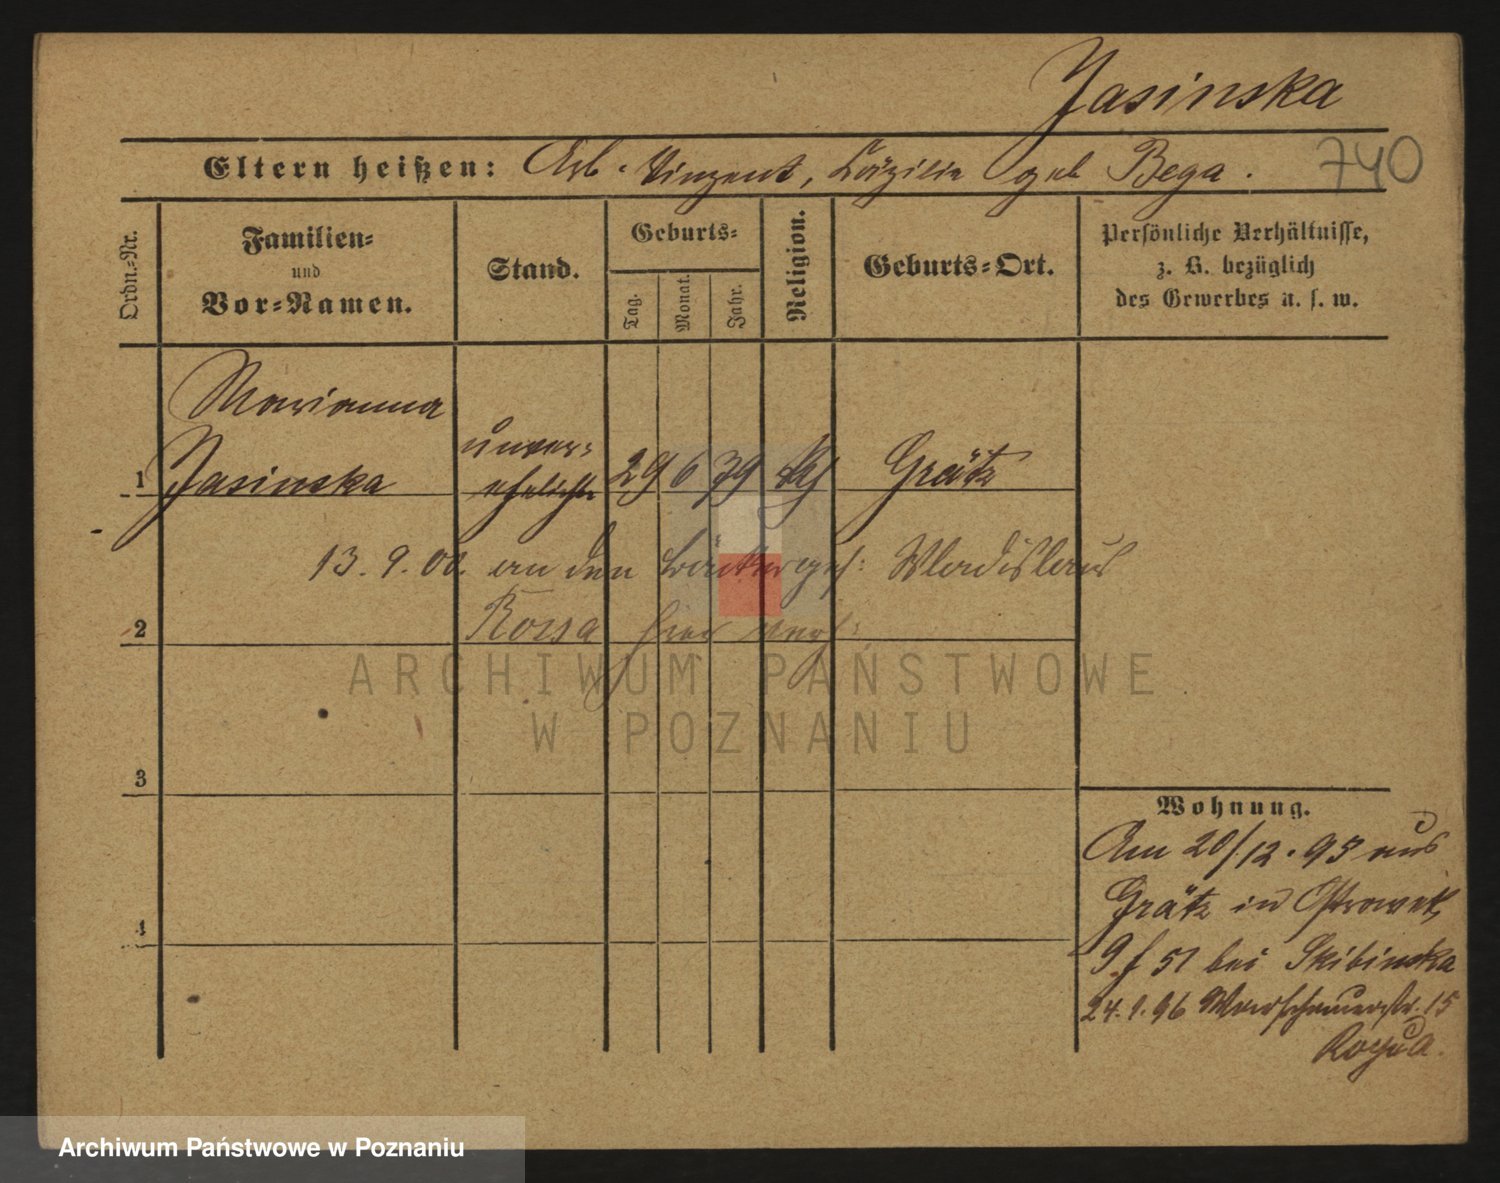 Jasinska
740
Eltern heißen: Arb. Vinzent, Cäzilia geb Bega.
Ordn.-Nr.
Familien-
und
Vor-Namen.
Stand.
Geburts-
Tag.
Monat.
Jahr.
Religion.
Geburts-Ort.
Persönliche Verhältnisse,
z. B. bezüglich
des Gewerbes u. s. w.
Marianna
1 Jasinska
unver-
ehelicht
29 6 79 Grätz
13.9.00. an den Bäckerges: Wladislaus
2 Rossa hier verh:
ARCHIWUM PAŃSTWOWE
W POZNANIU
3
Wohnung.
Am 20/12.95 aus
Grätz in Ostrowek
9 f 51 bei Skibinska
4
24.1.96 Warschauerstr. 15
Archiwum Państwowe w Poznaniu